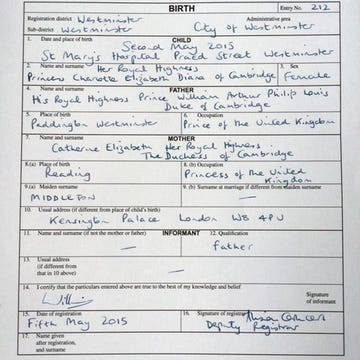 BIRTH
Entry No. 212
Registration district Westminster
Administrative area
Sub-district Westminster
City of Westminster
1. Date and place of birth
CHILD
Second May 2015
St Mary's Hospital Praed Street Westminster
2. Name and surname
Her Royal Highness
3. Sex
Princess Charlotte Elizabeth Diana of Cambridge
Female
4. Name and surname
FATHER
His Royal Highness Prince William Arthur Philip Louis
Duke of Cambridge
5. Place of birth
6. Occupation
Paddington Westminster
Prince of the United Kingdom
7. Name and surname
MOTHER
Catherine Elizabeth Her Royal Highness
The Duchess of Cambridge
8.(a) Place of birth
8. (b) Occupation
Reading
Princess of the United
Kingdom
9.(a) Maiden surname
9. (b) Surname at marriage if different from maiden surname
MIDDLETON
—
10. Usual address (if different from place of child's birth)
Kensington Palace London W8 4PU
11. Name and surname (if not the mother or father)
INFORMANT
12. Qualification
—
Father
13. Usual address
(if different from
that in 10 above)
—
14. I certify that the particulars entered above are true to the best of my knowledge and belief
Signature
of informant
15. Date of registration
16. Signature of registrar
Fifth May 2015
Deputy Registrar
17. Name given
after registration,
and surname